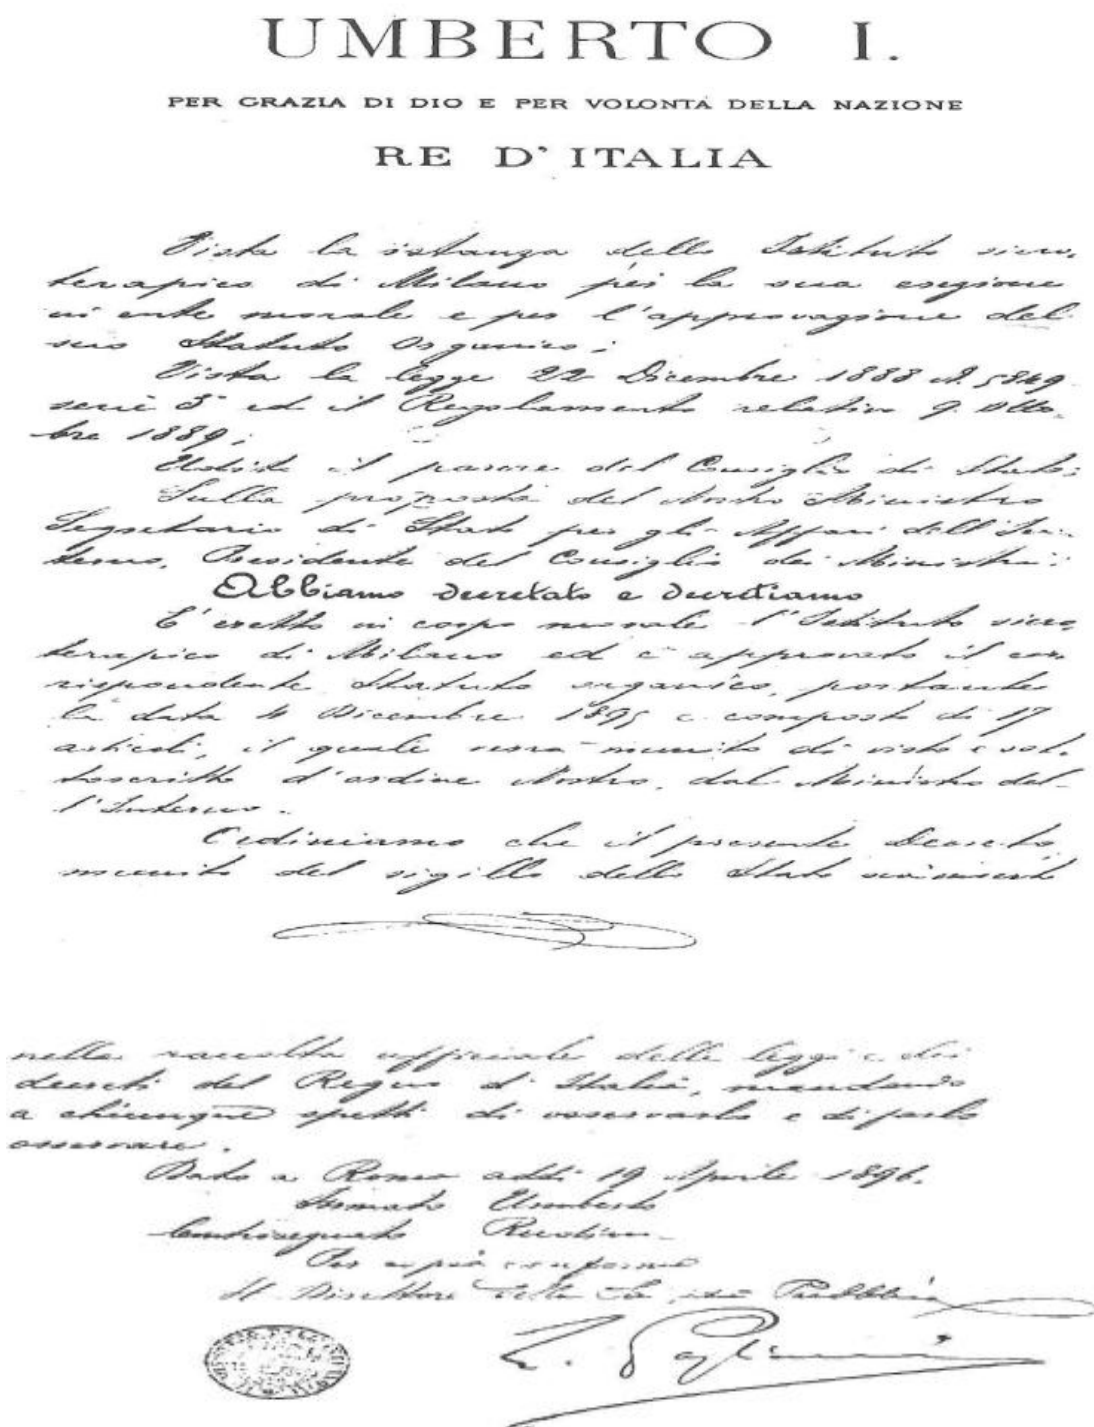 UMBERTO I.
PER GRAZIA DI DIO E PER VOLONTÀ DELLA NAZIONE
RE D'ITALIA
Vista la istanza dello Istituto siero,
terapico di Milano per la sua erezione
in ente morale e per l'approvazione del
suo Statuto Organico;
Vista la legge 22 Dicembre 1888 N. 5849
serie 3ª ed il Regolamento relativo 9 Otto,
bre 1889;
Udito il parere del Consiglio di Stato;
Sulla proposta del Nostro Ministro
Segretario di Stato per gli Affari dell'In-
terno, Presidente del Consiglio dei Ministri:
Abbiamo decretato e decretiamo
E' eretto in corpo morale l'Istituto siero,
terapico di Milano ed è approvato il cor,
rispondente Statuto organico, portante
la data 4 Dicembre 1895 e composto di 17
articoli, il quale verrà munito di visto e sot,
toscritto d'ordine Nostro, dal Ministro del-
l'Interno.
Ordiniamo che il presente Decreto,
munito del sigillo dello Stato sia inserto
nella raccolta ufficiale delle leggi e dei
decreti del Regno d'Italia, mandando
a chiunque spetti di osservarlo e di farlo
osservare.
Dato a Roma addì 19 Aprile 1896.
Firmato Umberto
Controsegnato Rudinì
Per copia conforme
Il Direttore della Sanità Pubblica
L. Pagliani